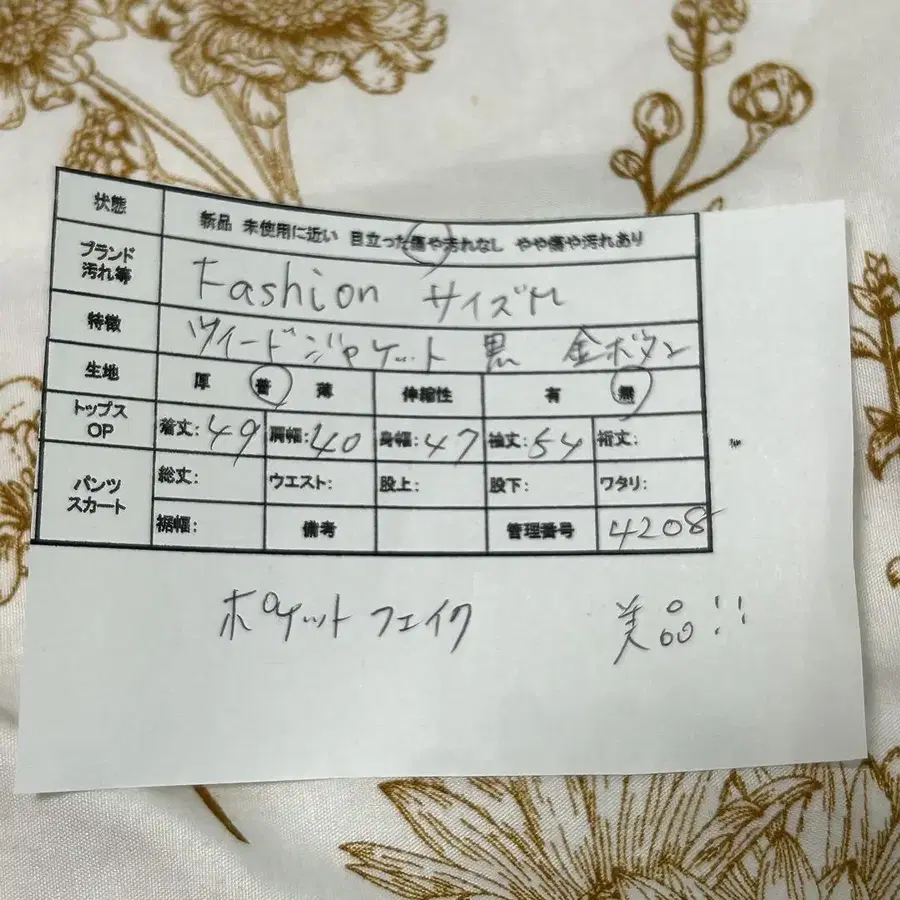 状態 新品 未使用に近い 目立った傷や汚れなし やや傷や汚れあり
ブランド 汚れ等 Fashion サイズM
特徴 ツイードジャケット 黒 金ボタン
生地 厚 普 薄 伸縮性 有 無
トップス OP 着丈:49 肩幅:40 身幅:47 袖丈:54 裄丈:
パンツ スカート 総丈: ウエスト: 股上: 股下: ワタリ:
裾幅: 備考 管理番号 4208
ポケットフェイク 美品!!